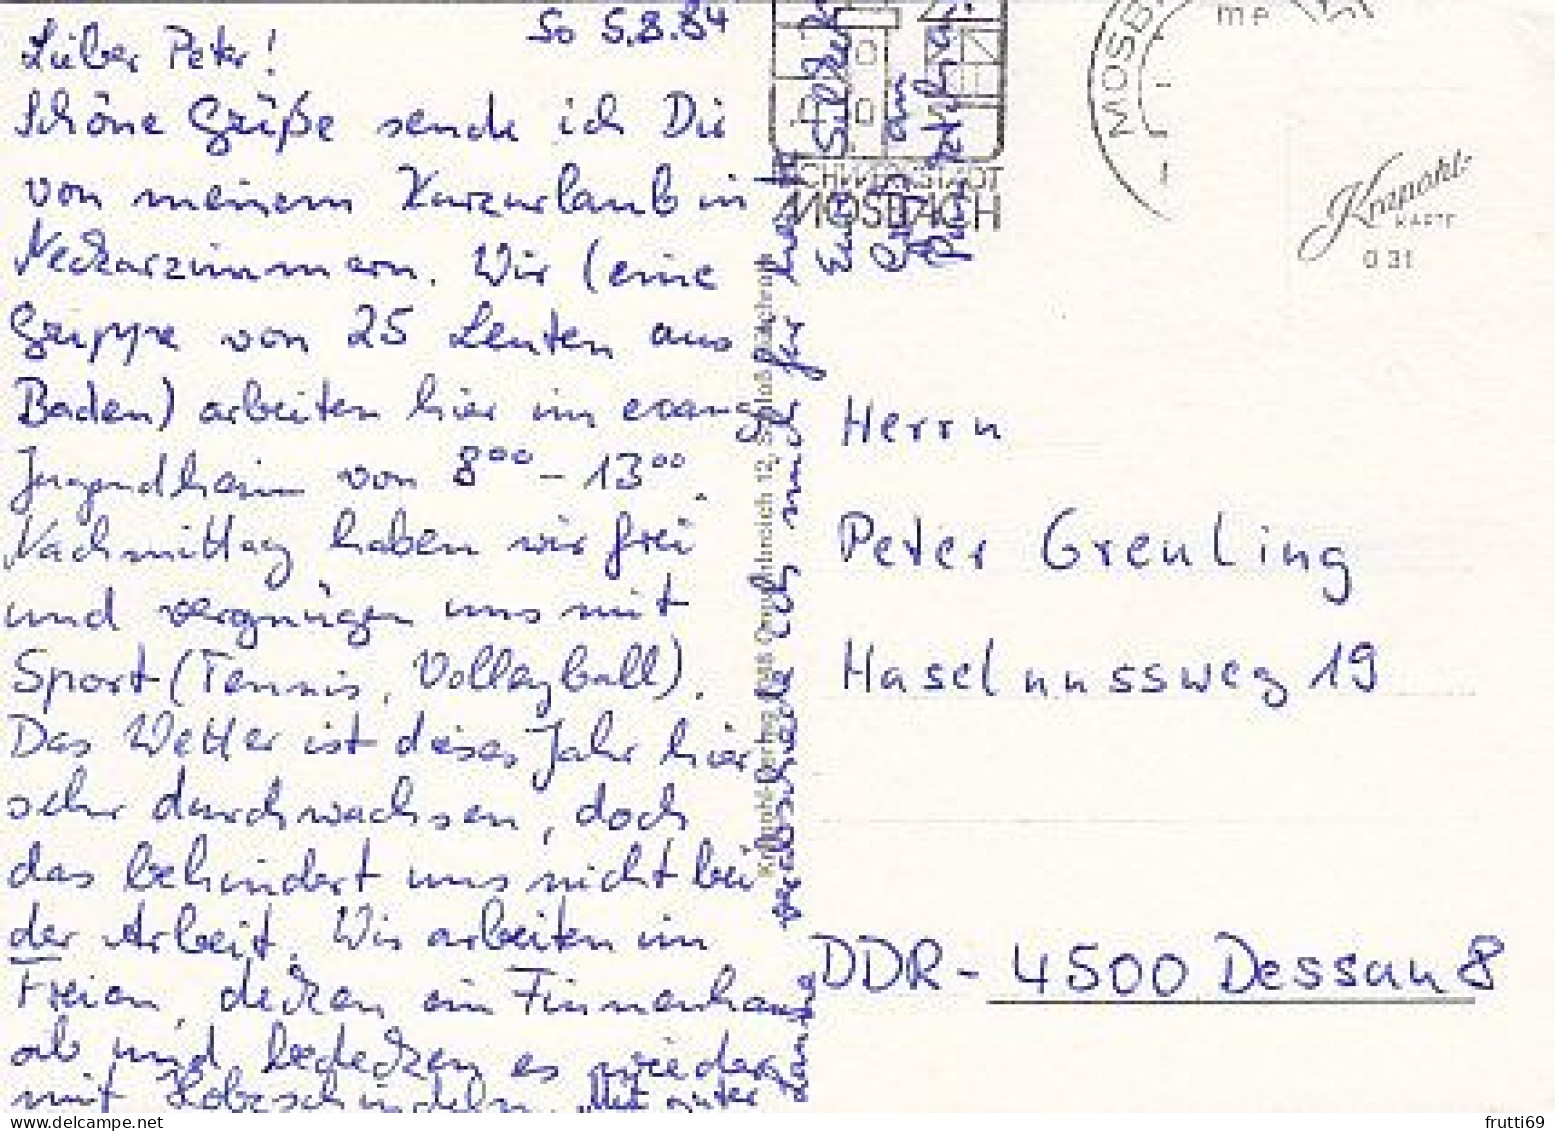 So 5.8.84
Lieber Peter!
Schöne Grüße sende ich Dir
von meinem Kurzurlaub in
Neckarzimmern. Wir (eine
Gruppe von 25 Leuten aus
Baden) arbeiten hier im evang.
Jugendheim von 8⁰⁰ - 13⁰⁰.
Nachmittag haben wir frei
und vergnügen uns mit
Sport (Tennis, Volleyball).
Das Wetter ist dieses Jahr hier
sehr durchwachsen, doch
das behindert uns nicht bei
der Arbeit. Wir arbeiten im
Freien, decken ein Finnenhaus
ab und bedecken es wieder
mit Holzschindeln. Mit guter
Laune verabschiede ich mich für heute
Euer
Gruß an
MOSBACH
MOSB
Krapohl-
KARTE
031
Herrn
Peter Greuling
Haselnussweg 19
DDR - 4500 Dessau 8
https://www.delcampe.net
frutti69